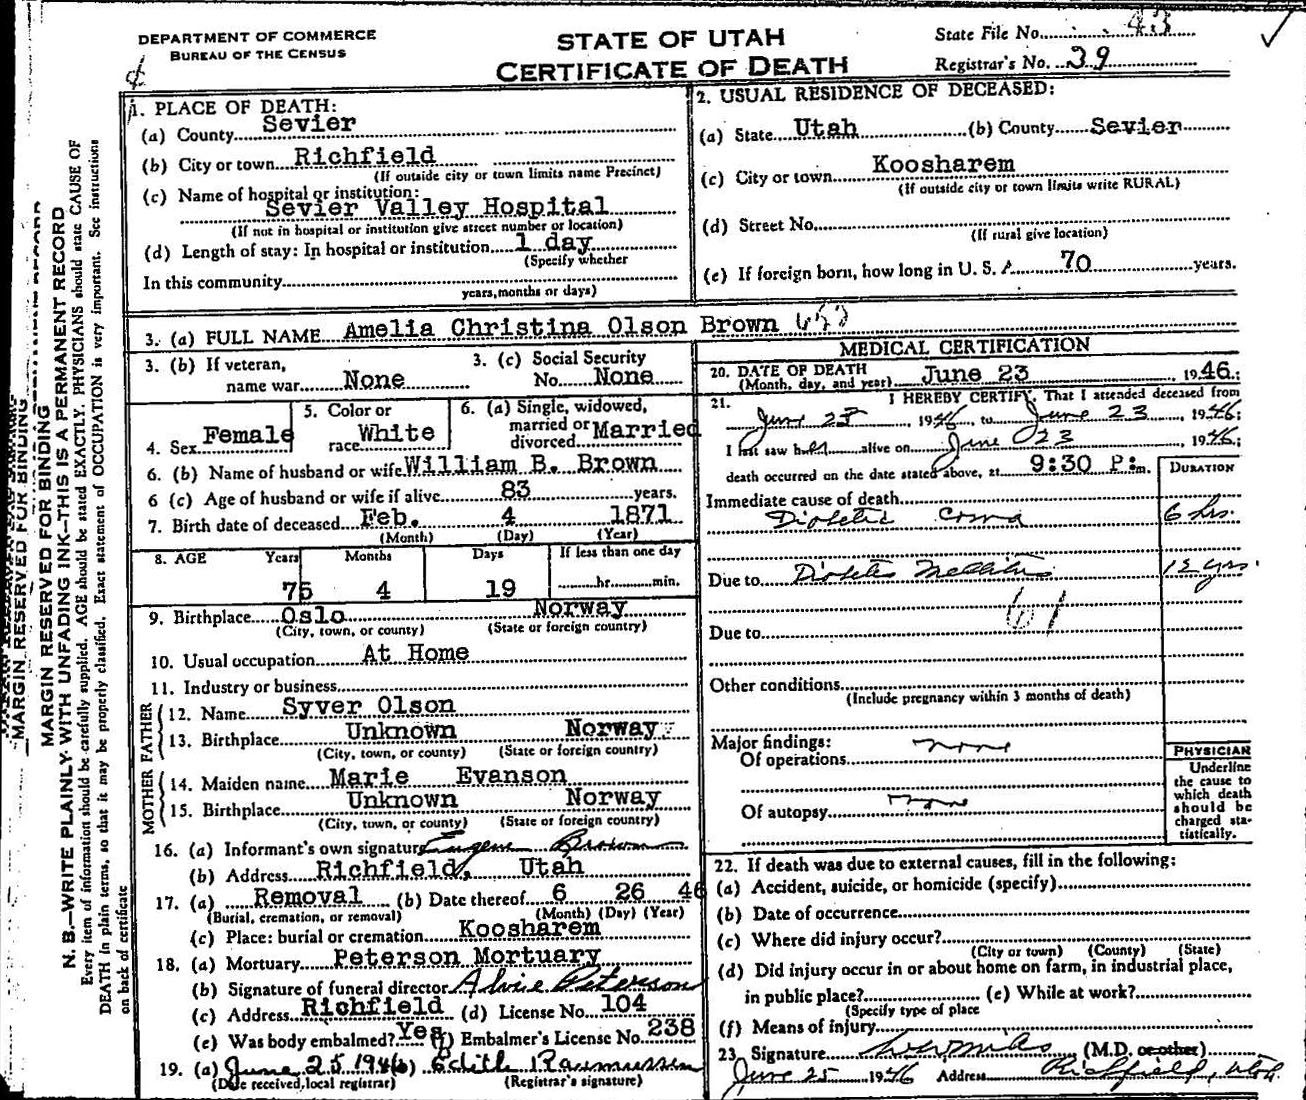 DEPARTMENT OF COMMERCE
BUREAU OF THE CENSUS
STATE OF UTAH
CERTIFICATE OF DEATH
State File No. 43
Registrar's No. 39
1. PLACE OF DEATH:
(a) County Sevier
(b) City or town Richfield
(If outside city or town limits name Precinct)
(c) Name of hospital or institution:
Sevier Valley Hospital
(If not in hospital or institution give street number or location)
(d) Length of stay: In hospital or institution 1 day
(Specify whether
In this community
years, months or days)
2. USUAL RESIDENCE OF DECEASED:
(a) State Utah (b) County Sevier
(c) City or town Koosharem
(If outside city or town limits write RURAL)
(d) Street No.
(If rural give location)
(e) If foreign born, how long in U. S. A. 70 years.
3. (a) FULL NAME Amelia Christina Olson Brown
3. (b) If veteran, name war None
3. (c) Social Security No. None
4. Sex Female
5. Color or race White
6. (a) Single, widowed, married or divorced Married
6. (b) Name of husband or wife William B. Brown
6 (c) Age of husband or wife if alive 83 years.
7. Birth date of deceased Feb. 4 1871
(Month) (Day) (Year)
8. AGE Years Months Days If less than one day
75 4 19 hr. min.
9. Birthplace Oslo Norway
(City, town, or county) (State or foreign country)
10. Usual occupation At Home
11. Industry or business
FATHER
12. Name Syver Olson
13. Birthplace Unknown Norway
(City, town, or county) (State or foreign country)
MOTHER
14. Maiden name Marie Evanson
15. Birthplace Unknown Norway
(City, town, or county) (State or foreign country)
16. (a) Informant's own signature Eugene Brown
(b) Address Richfield, Utah
17. (a) Removal (b) Date thereof 6 26 46
(Burial, cremation, or removal) (Month) (Day) (Year)
(c) Place: burial or cremation Koosharem
18. (a) Mortuary Peterson Mortuary
(b) Signature of funeral director Alvie Peterson
(c) Address Richfield (d) License No. 104
(e) Was body embalmed? Yes (f) Embalmer's License No. 238
19. (a) June 25 1946 (b) Edith Rasmussen
(Date received local registrar) (Registrar's signature)
MEDICAL CERTIFICATION
20. DATE OF DEATH
(Month, day, and year) June 23, 1946.;
21. I HEREBY CERTIFY, That I attended deceased from
June 23, 1946, to June 23, 1946;
I last saw her alive on June 23, 1946;
death occurred on the date stated above, at 9:30 P.m.
DURATION
Immediate cause of death
Diabetic Coma 6 hrs.
Due to Diabetes Mellitus 12 yrs.
61
Due to
Other conditions
(Include pregnancy within 3 months of death)
Major findings:
Of operations none
Of autopsy none
PHYSICIAN
Underline
the cause to
which death
should be
charged sta-
tistically.
22. If death was due to external causes, fill in the following:
(a) Accident, suicide, or homicide (specify)
(b) Date of occurrence
(c) Where did injury occur?
(City or town) (County) (State)
(d) Did injury occur in or about home on farm, in industrial place,
in public place? (e) While at work?
(Specify type of place
(f) Means of injury
23. Signature (M.D. or other)
June 25 1946 Address Richfield, Utah.
MARGIN RESERVED FOR BINDING
MARGIN RESERVED FOR BINDING
N. B.—WRITE PLAINLY WITH UNFADING INK—THIS IS A PERMANENT RECORD
Every item of information should be carefully supplied. AGE should be stated EXACTLY. PHYSICIANS should state CAUSE OF
DEATH in plain terms, so that it may be properly classified. Exact statement of OCCUPATION is very important. See instructions
on back of certificate